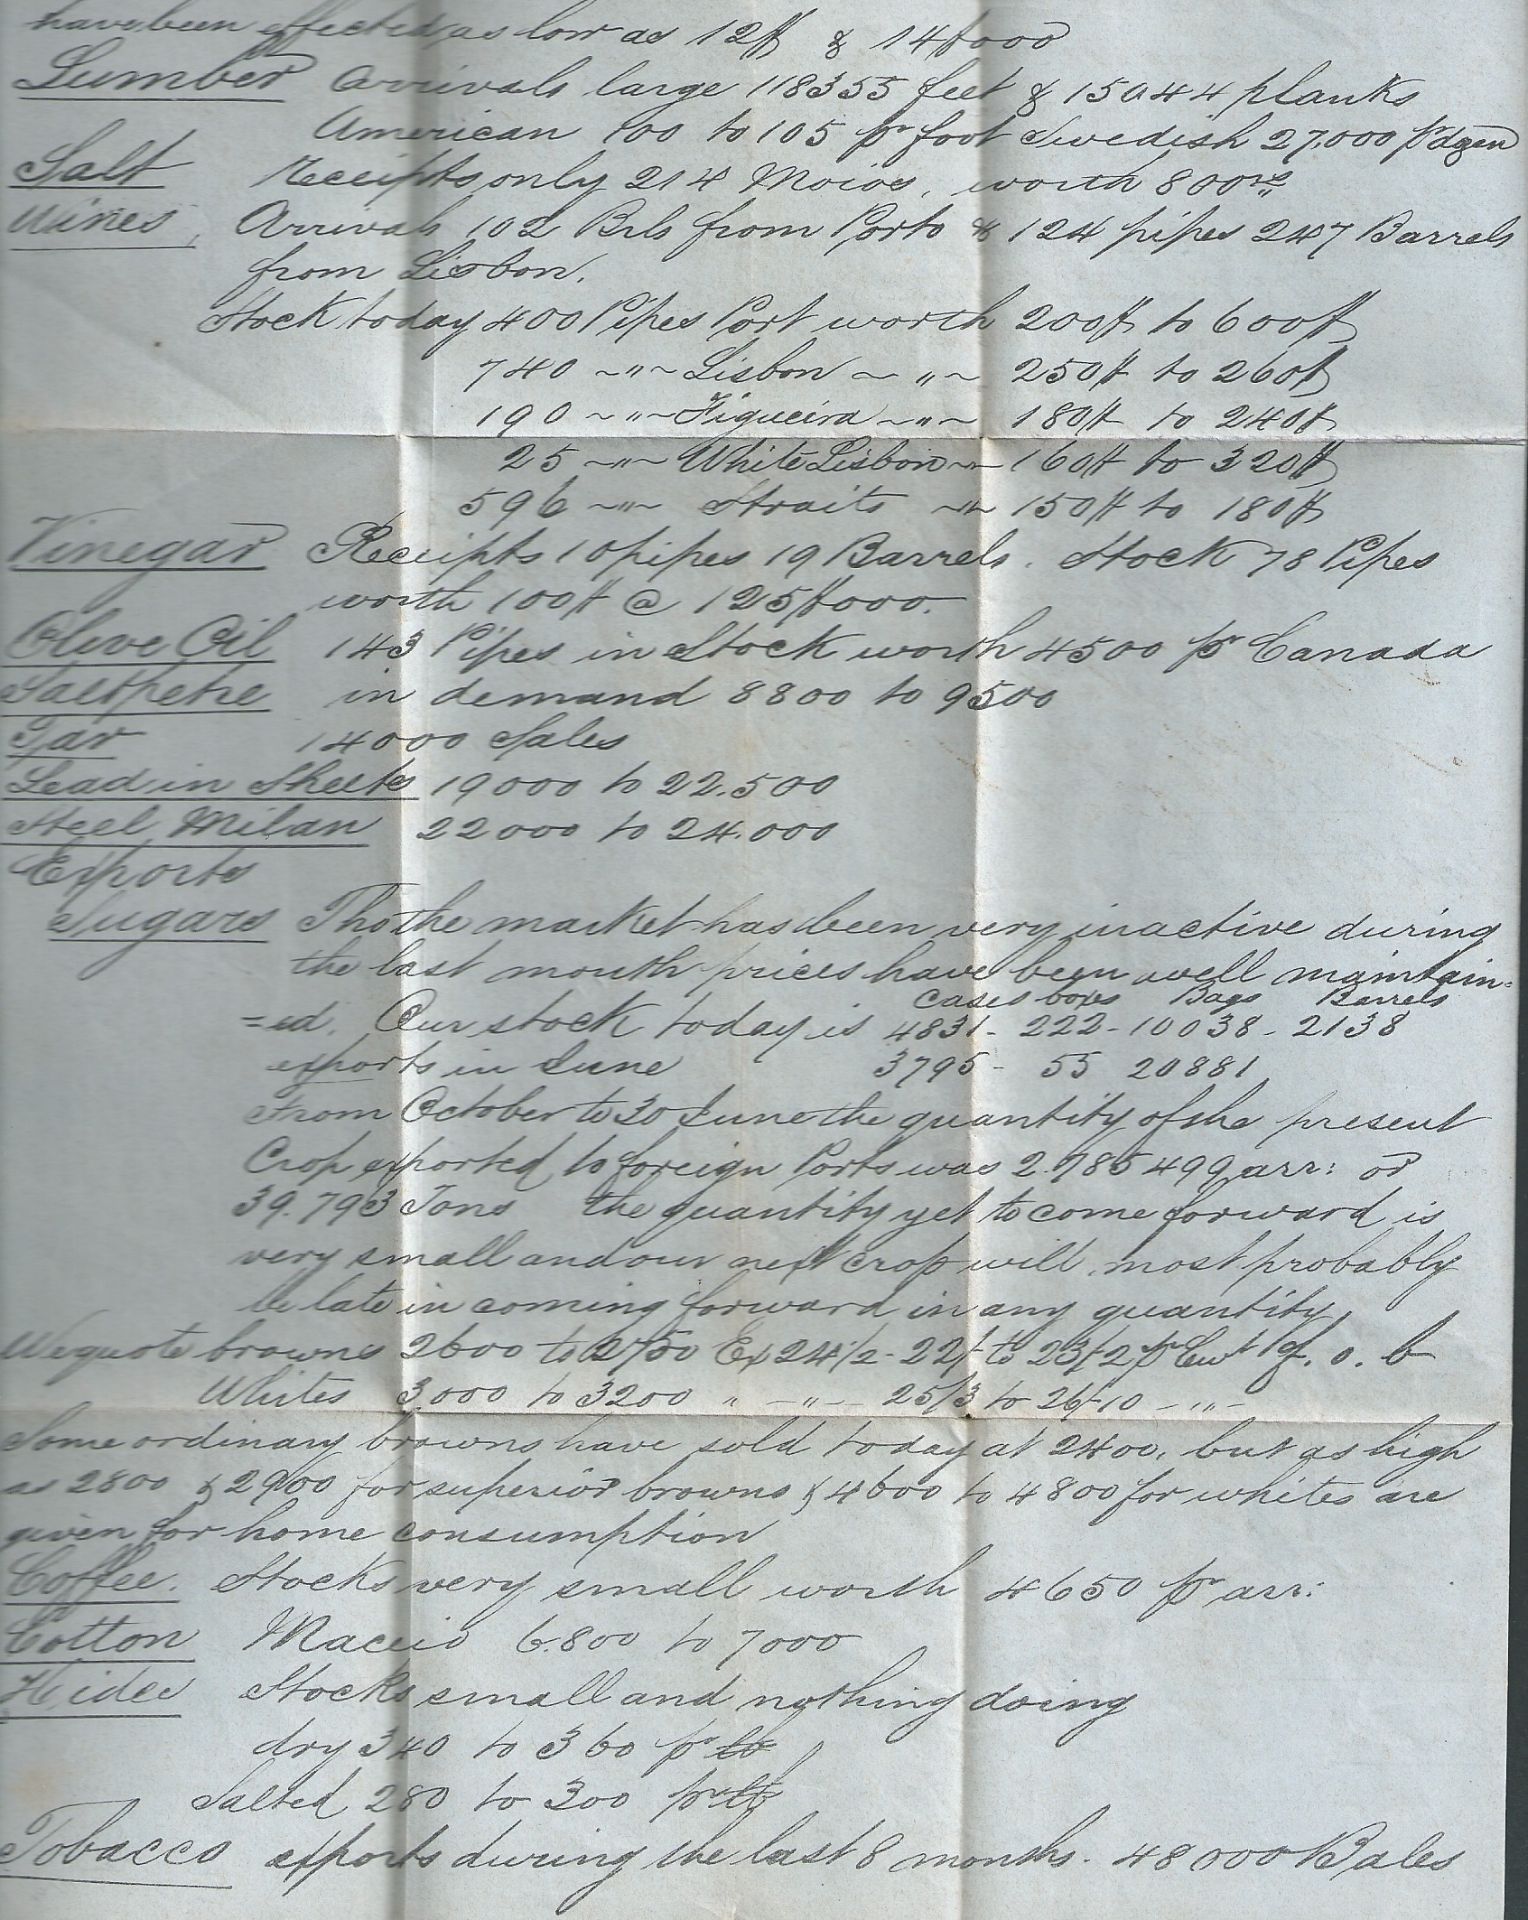 have been effected as low as 12$ & 14$000
Lumber Arrivals large 118355 feet & 15044 planks
American 100 to 105 pr foot Swedish 27.000 pr dozen
Salt Receipts only 214 Moios, worth 800rs
Wines, Arrivals 102 Brls from Porto & 124 pipes 247 Barrels
from Lisbon.
Stock today 400 Pipes Port worth 200$ to 600$
740 ~"~ Lisbon ~ "~ 250$ to 260$
190 ~"~ Figueira ~"~ 180$ to 240$
25 ~"~ White Lisbon ~"~ 160$ to 320$
596 ~"~ Straits ~"~ 150$ to 180$
Vinegar Receipts 10 pipes 19 Barrels. Stock 78 Pipes
worth 100$ @ 125$000.
Olive Oil 143 Pipes in Stock worth 4500 pr Canada
Saltpetre in demand 8800 to 9500
Tar 14000 Sales
Lead in Sheets 19000 to 22.500
Steel, Milan 22000 to 24.000
Exports
Sugars Tho the market has been very inactive during
the last month prices have been well maintain=
Cases boxes Bags Barrels
=ed. Our stock today is 4831 - 222 - 10038 - 2138
exports in June 3795 - 55 20881
From October to 30 June the quantity of the present
Crop exported to foreign Ports was 2.785499 arr: or
39.793 Tons the quantity yet to come forward is
very small and our next crop will most probably
be late in coming forward in any quantity
We quote browns 2600 to 2750 Ex 24 1/2 - 22/ to 23/2 pr Cwt f. o. b
Whites 3.000 to 3200 " - " - 25/3 to 26/10 - " -
Some ordinary browns have sold today at 2400, but as high
as 2800 & 2900 for superior browns & 4600 to 4800 for whites are
given for home consumption
Coffee. Stocks very small worth 4650 pr arr:
Cotton Maceio 6.800 to 7000
Hides Stocks small and nothing doing
dry 340 to 360 pr lb
Salted 280 to 300 pr lb
Tobacco exports during the last 8 months. 48000 Bales